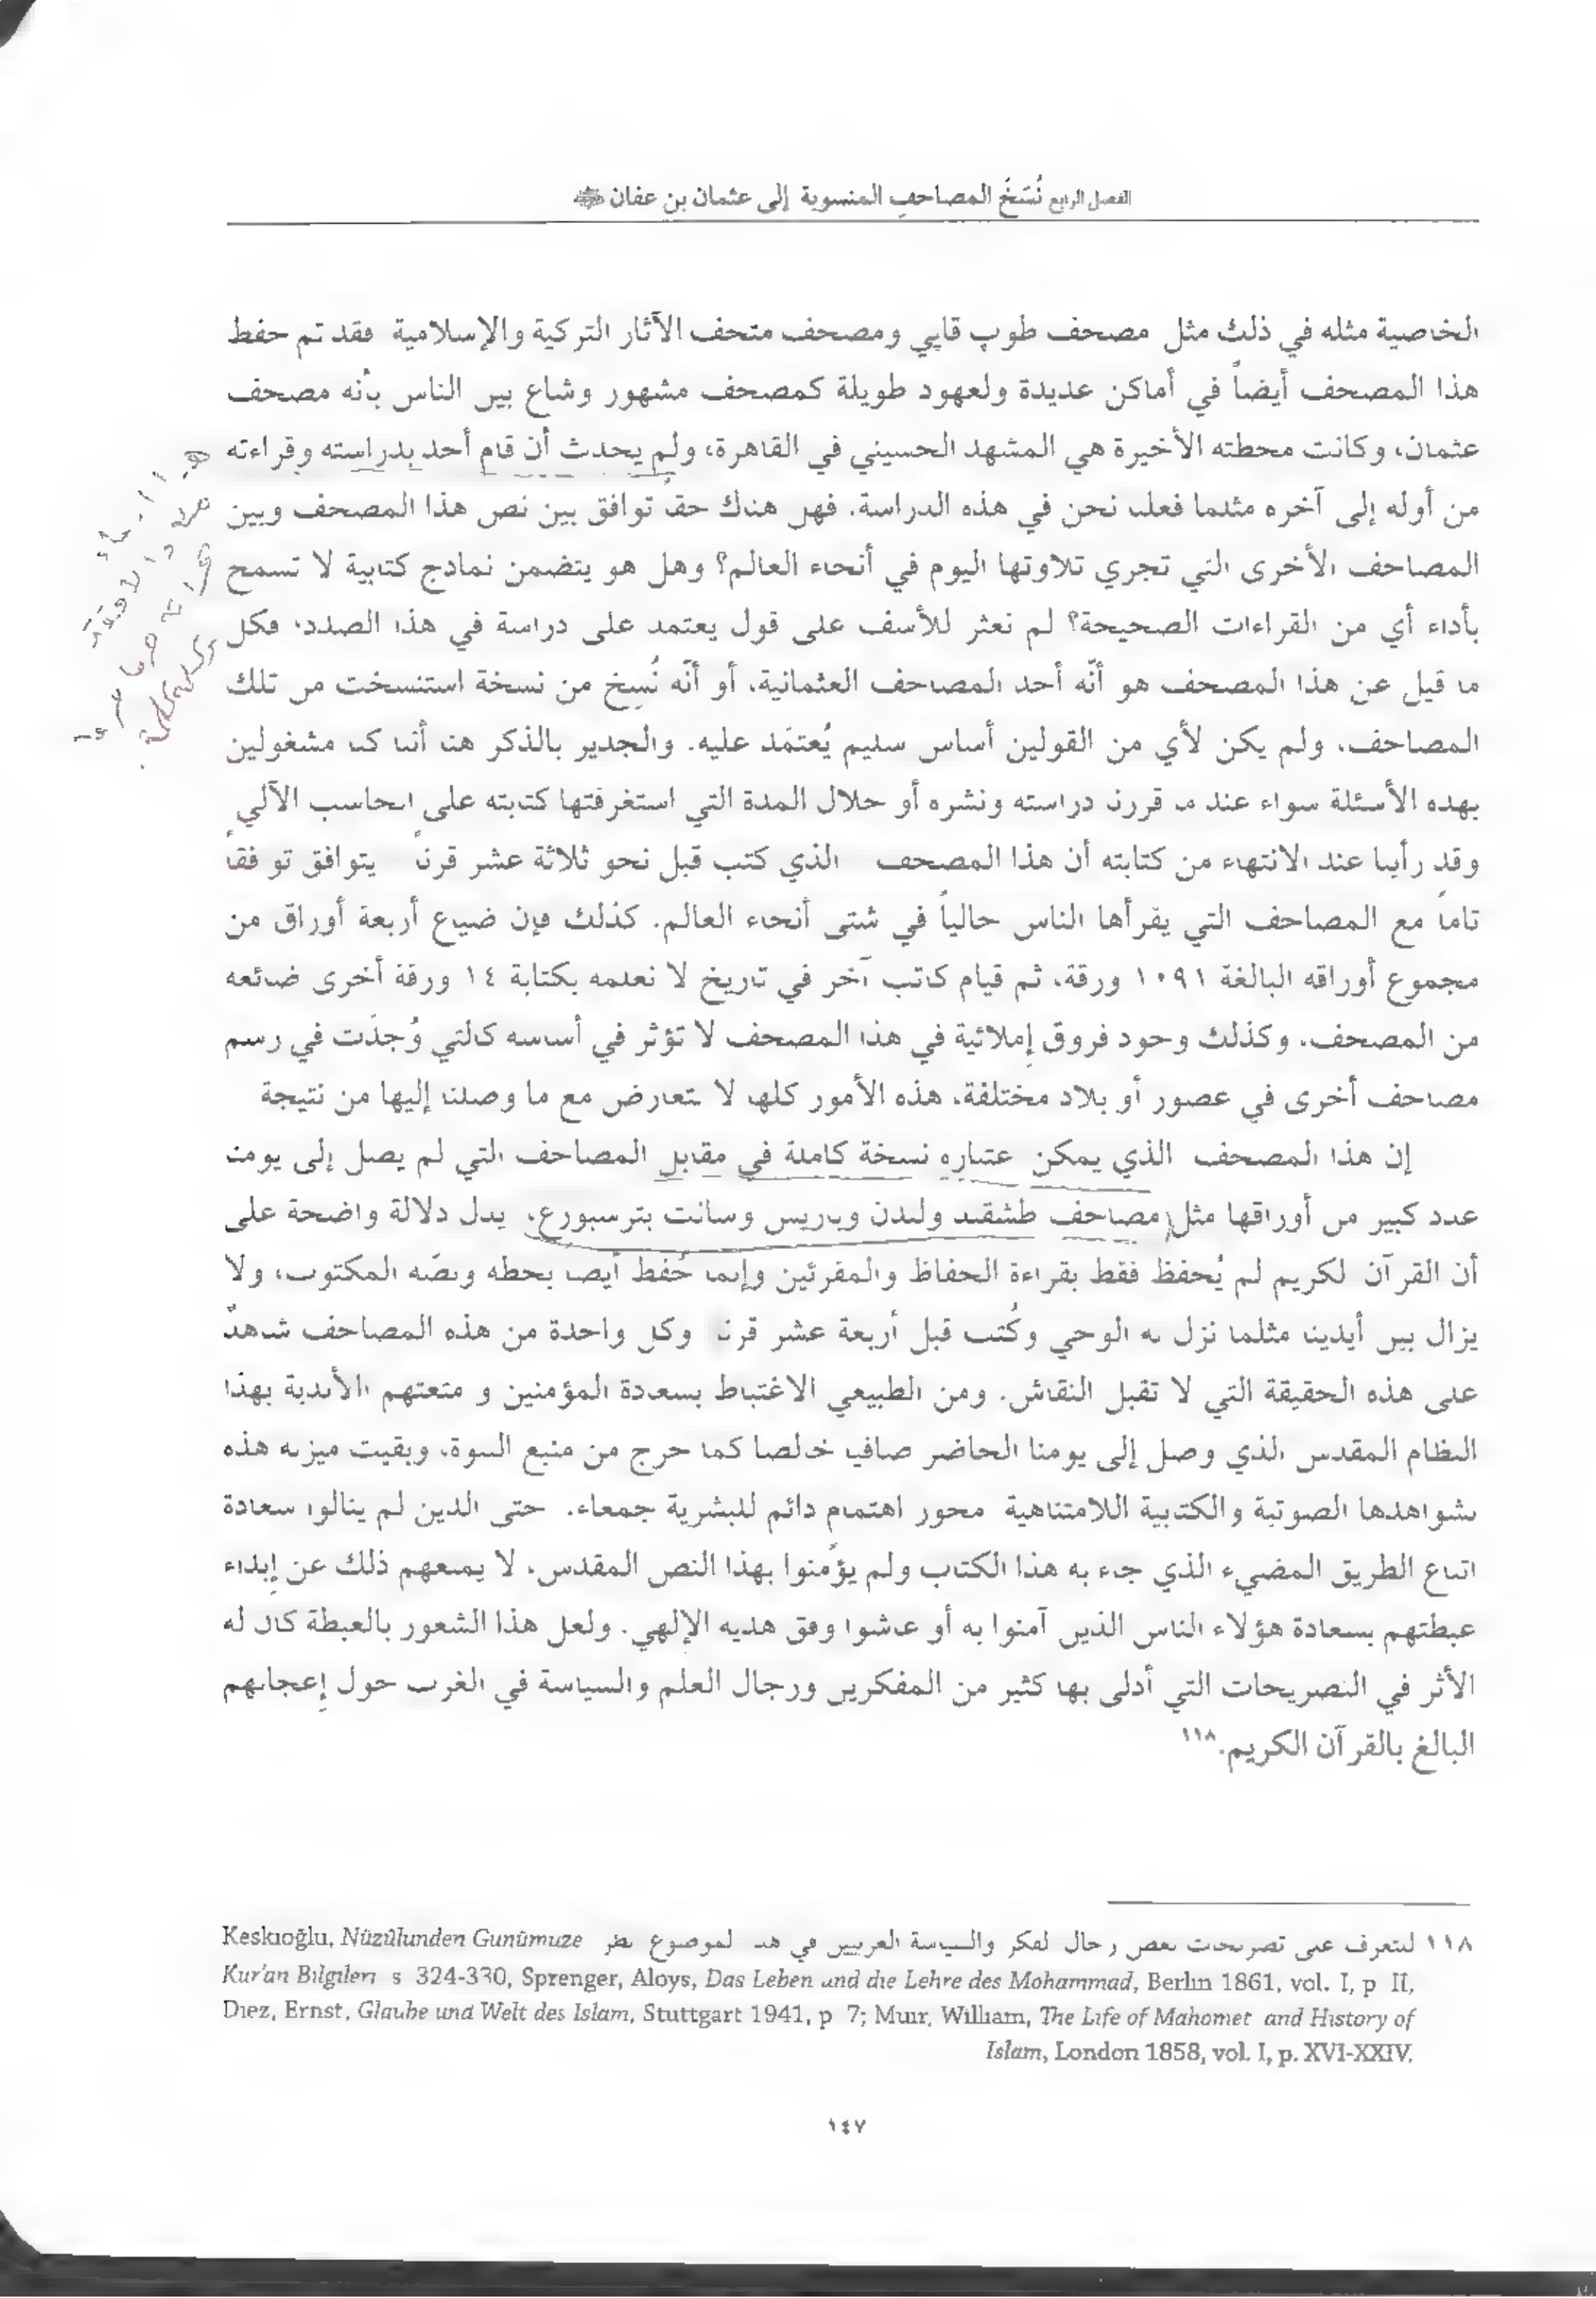 الفصل الرابع نُسَخُ المصاحف المنسوبة إلى عثمان بن عفان
الخاصية مثله في ذلك مثل مصحف طوب قابي ومصحف متحف الآثار التركية والإسلامية فقد تم حفظ
هذا المصحف أيضاً في أماكن عديدة ولعهود طويلة كمصحف مشهور وشاع بين الناس بأنه مصحف
عثمان، وكانت محطته الأخيرة هي المشهد الحسيني في القاهرة، ولم يحدث أن قام أحد بدراسته وقراءته
من أوله إلى آخره مثلما فعلنا نحن في هذه الدراسة. فهل هناك حقاً توافق بين نص هذا المصحف وبين
المصاحف الأخرى التي تجري تلاوتها اليوم في أنحاء العالم؟ وهل هو يتضمن نماذج كتابية لا تسمح
بأداء أي من القراءات الصحيحة؟ لم نعثر للأسف على قول يعتمد على دراسة في هذا الصدد، فكل
ما قيل عن هذا المصحف هو أنّه أحد المصاحف العثمانية، أو أنّه نُسِخ من نسخة استنسخت من تلك
المصاحف، ولم يكن لأي من القولين أساس سليم يُعتمَد عليه. والجدير بالذكر هنا أننا كنا مشغولين
بهذه الأسئلة سواء عند ما قررنا دراسته ونشره أو خلال المدة التي استغرقتها كتابته على الحاسب الآلي
وقد رأينا عند الانتهاء من كتابته أن هذا المصحف الذي كتب قبل نحو ثلاثة عشر قرناً يتوافق توافقاً
تاماً مع المصاحف التي يقرأها الناس حالياً في شتى أنحاء العالم. كذلك فإن ضياع أربعة أوراق من
مجموع أوراقه البالغة ١٠٩١ ورقة، ثم قيام كاتب آخر في تاريخ لا نعلمه بكتابة ١٤ ورقة أخرى ضائعه
من المصحف، وكذلك وجود فروق إملائية في هذا المصحف لا تؤثر في أساسه كالتي وُجدَت في رسم
مصاحف أخرى في عصور أو بلاد مختلفة، هذه الأمور كلها لا تتعارض مع ما وصلنا إليها من نتيجة
إن هذا المصحف الذي يمكن اعتباره نسخة كاملة في مقابل المصاحف التي لم يصل إلى يومنا
عدد كبير من أوراقها مثل مصاحف طشقند ولندن وباريس وسانت بترسبورغ، يدل دلالة واضحة على
أن القرآن الكريم لم يُحفظ فقط بقراءة الحفاظ والمقرئين وإنما حُفظ أيضا بخطه ونصّه المكتوب، ولا
يزال بين أيدينا مثلما نزل به الوحي وكُتب قبل أربعة عشر قرنا وكل واحدة من هذه المصاحف شاهدٌ
على هذه الحقيقة التي لا تقبل النقاش. ومن الطبيعي الاغتباط بسعادة المؤمنين و متعتهم الأبدية بهذا
النظام المقدس الذي وصل إلى يومنا الحاضر صافيا خالصا كما خرج من منبع النبوة، وبقيت ميزته هذه
بشواهدها الصوتية والكتابية اللامتناهية محور اهتمام دائم للبشرية جمعاء. حتى الذين لم ينالوا سعادة
اتباع الطريق المضيء الذي جاء به هذا الكتاب ولم يؤمنوا بهذا النص المقدس، لا يمنعهم ذلك عن إبداء
غبطتهم بسعادة هؤلاء الناس الذين آمنوا به أو عاشوا وفق هديه الإلهي. ولعل هذا الشعور بالغبطة كان له
الأثر في التصريحات التي أدلى بها كثير من المفكرين ورجال العلم والسياسة في الغرب حول إعجابهم
البالغ بالقرآن الكريم.١١٨
١١٨ للتعرف على تصريحات بعض رجال الفكر والسياسة الغربيين في هذا الموضوع انظر Keskioğlu, Nüzûlünden Günümüze
Kur'an Bilgileri s 324-330, Sprenger, Aloys, Das Leben und die Lehre des Mohammad, Berlin 1861, vol. I, p II,
Diez, Ernst, Glaube und Welt des Islam, Stuttgart 1941, p 7; Muir, William, The Life of Mahomet and History of
Islam, London 1858, vol. I, p. XVI-XXIV.
١٤٧